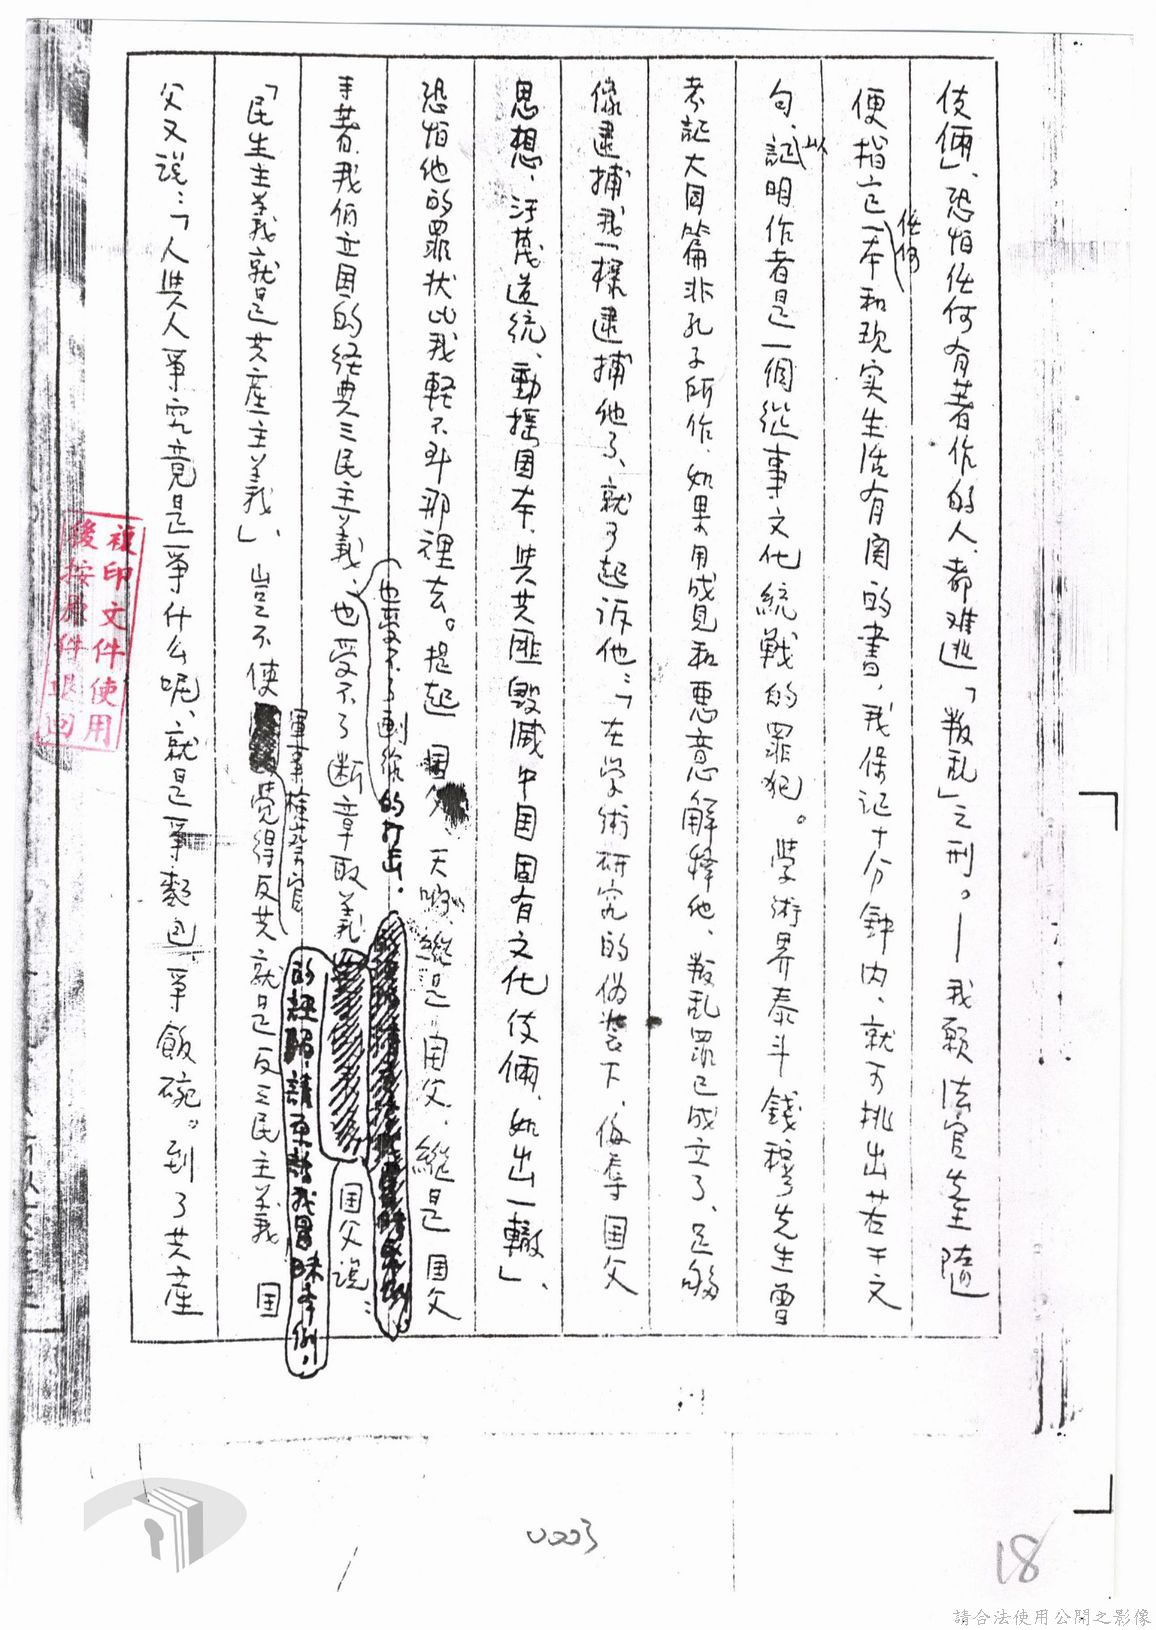 伎倆」、恐怕任何有著作的人、都難逃「叛乱」之刑。——我願法官先生隨
便指定一本任何和现实生活有関的書、我保证十分鈡内、就可挑出若干文
句、以証明作者是一個從事文化統戰的罪犯。學術界泰斗錢穆先生曾
考証大同篇非孔子所作、如果用成見和惡意解释他、叛乱罪已成立了、足够
像逮捕我一樣逮捕他了、就可起诉他：「在学術研究的偽装下、侮辱国父
思想、汙蔑道統、動摇国本、與共匪毁滅中国固有文化伎倆、如出一轍」、
恐怕他的罪状比我輕不到那裡去。提起国父、天哟、縱是国父、縱是国父
手著、我們立国的经典三民主義、也受不了断章取義
也受不了割裂的打击。
国父说：
「民生主義就是共產主義」、豈不使軍事檢察官覺得反共就是反三民主義
的經歷、請原諒我冒昧舉例，
国
父又説：「人與人爭究竟是爭什么呢、就是爭麵包爭飯碗。到了共產
複印文件使用
後按原件退回
0003
18
請合法使用公開之影像